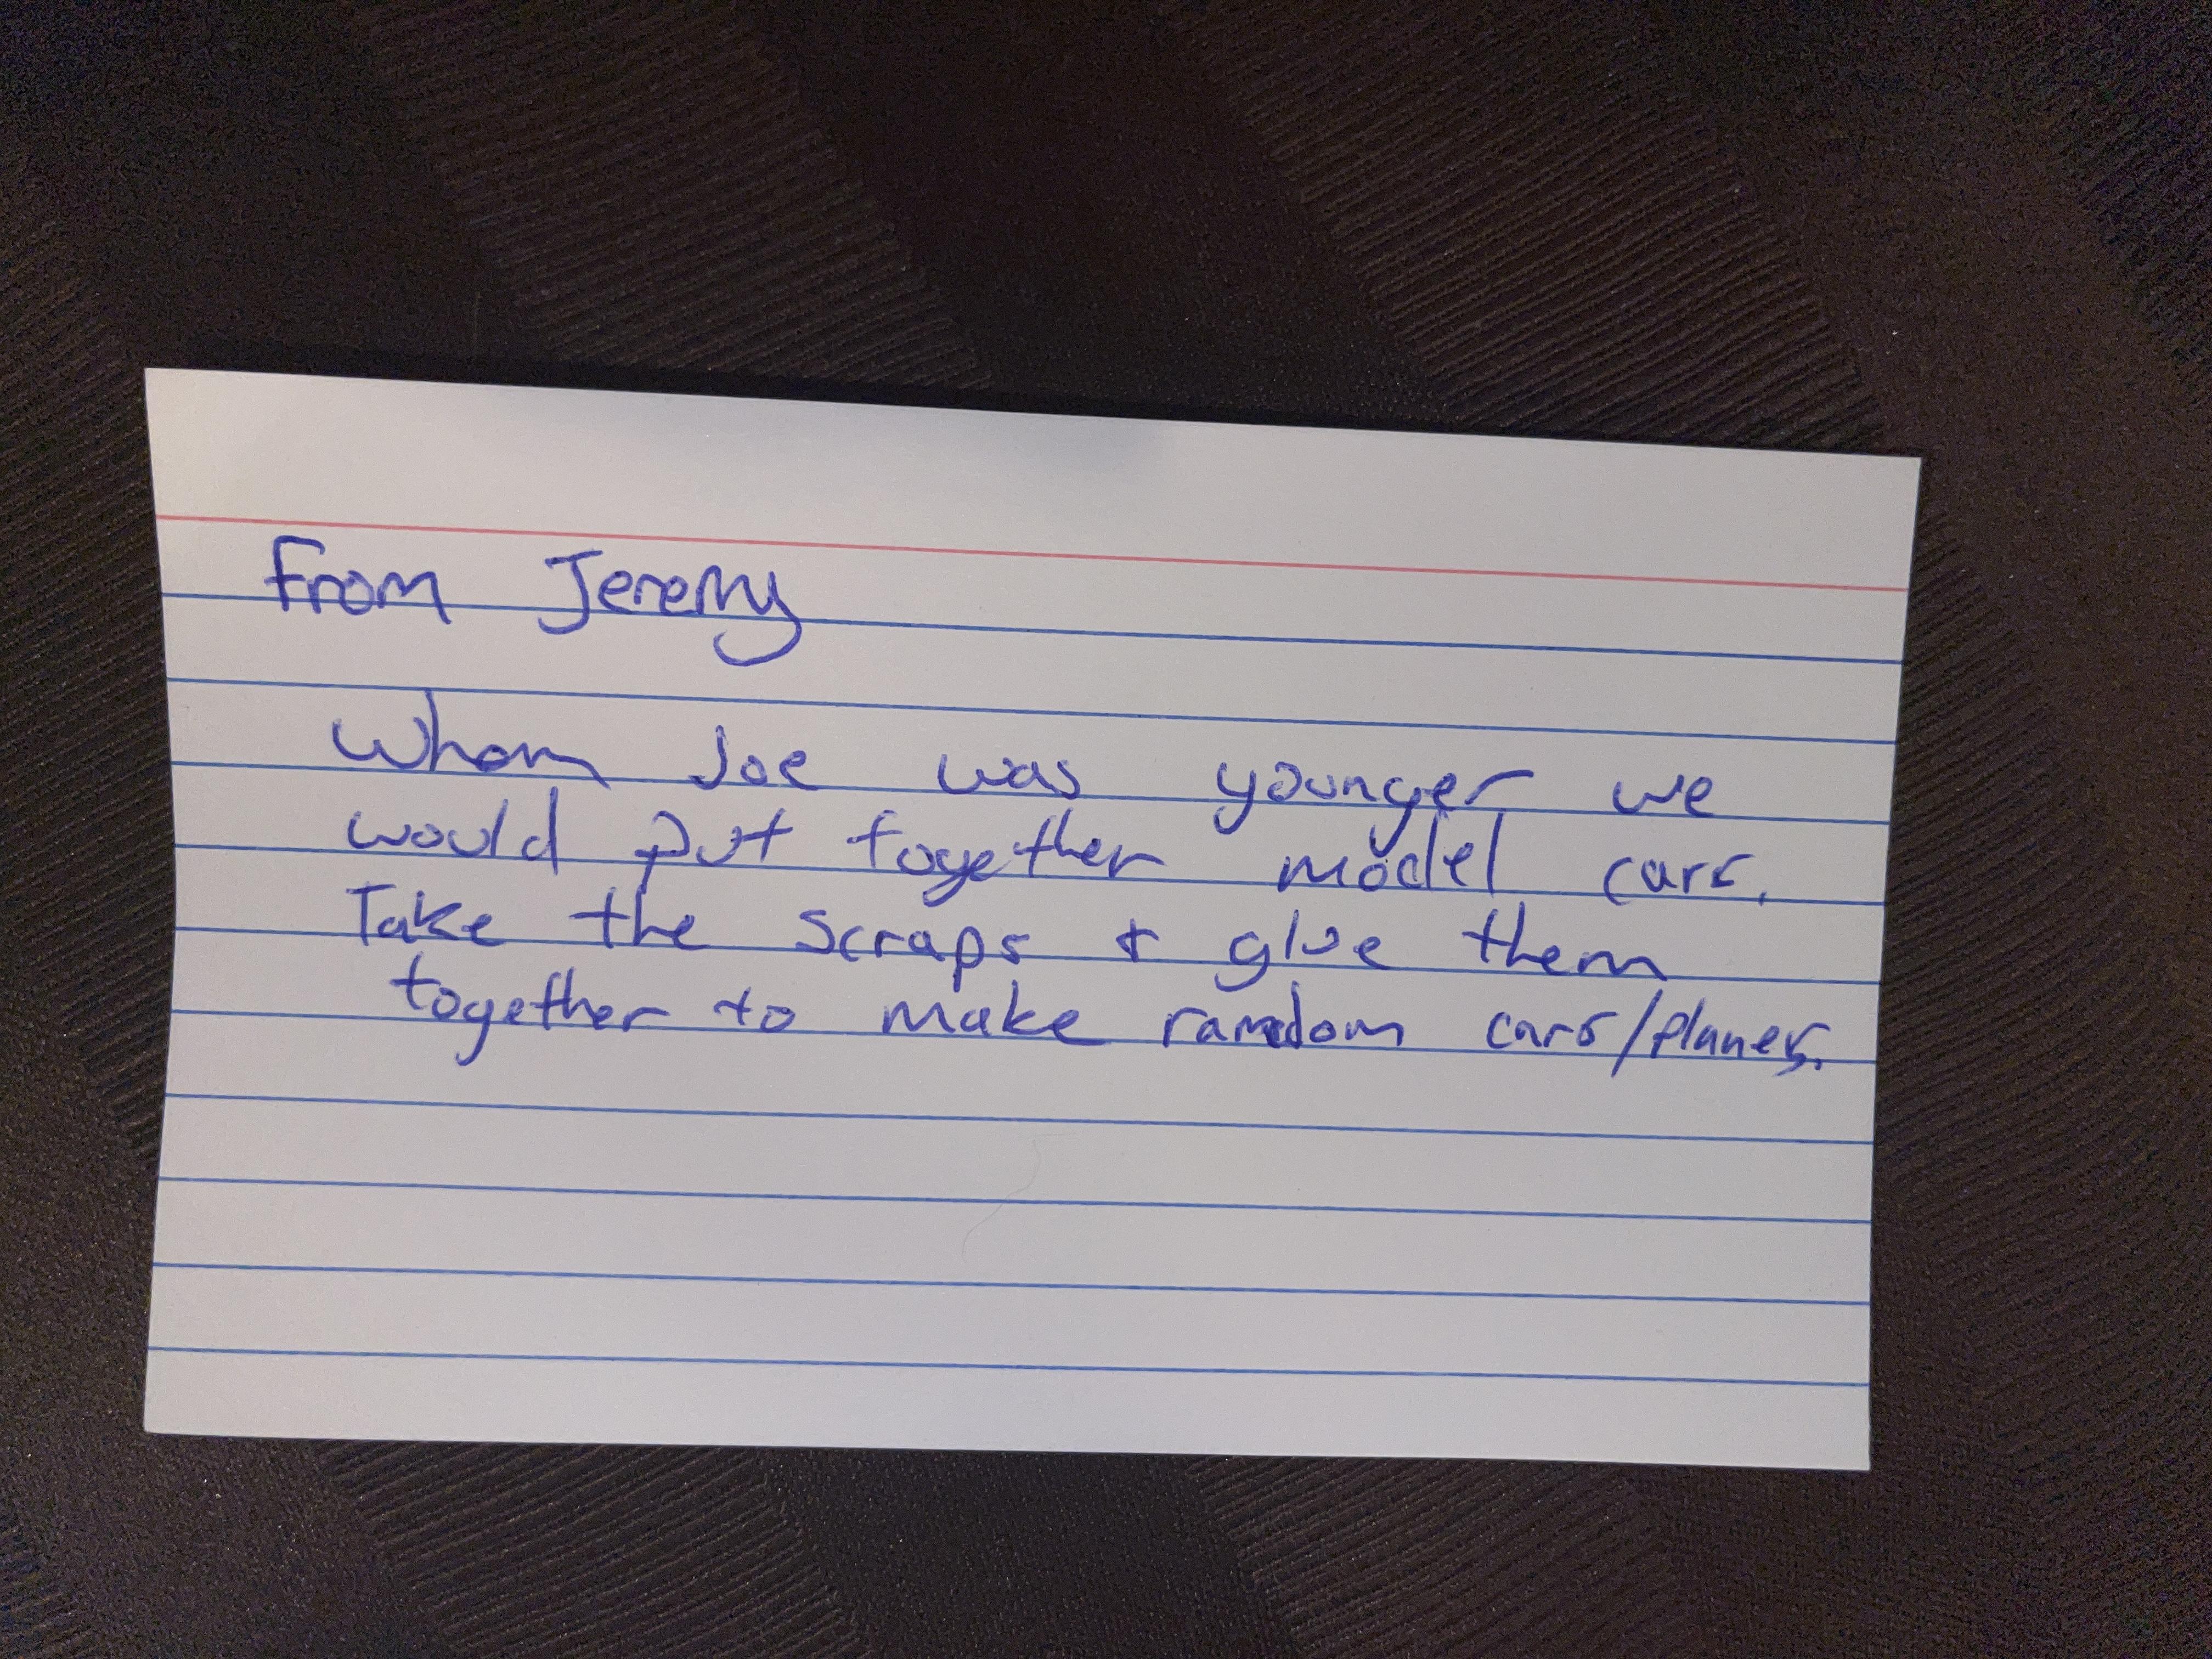 From Jeremy
Whom Joe was younger we
would put together model cars.
Take the scraps & glue them
together to make random cars/planes.